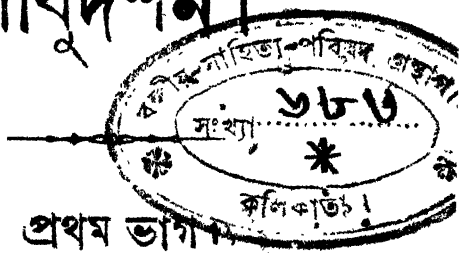 সাধুদর্শন।
বঙ্গীয়-সাহিত্য-পরিষদ গ্রন্থাগার
সংখ্যা ৬৮৩
কলিকাতা।
প্রথম ভাগ